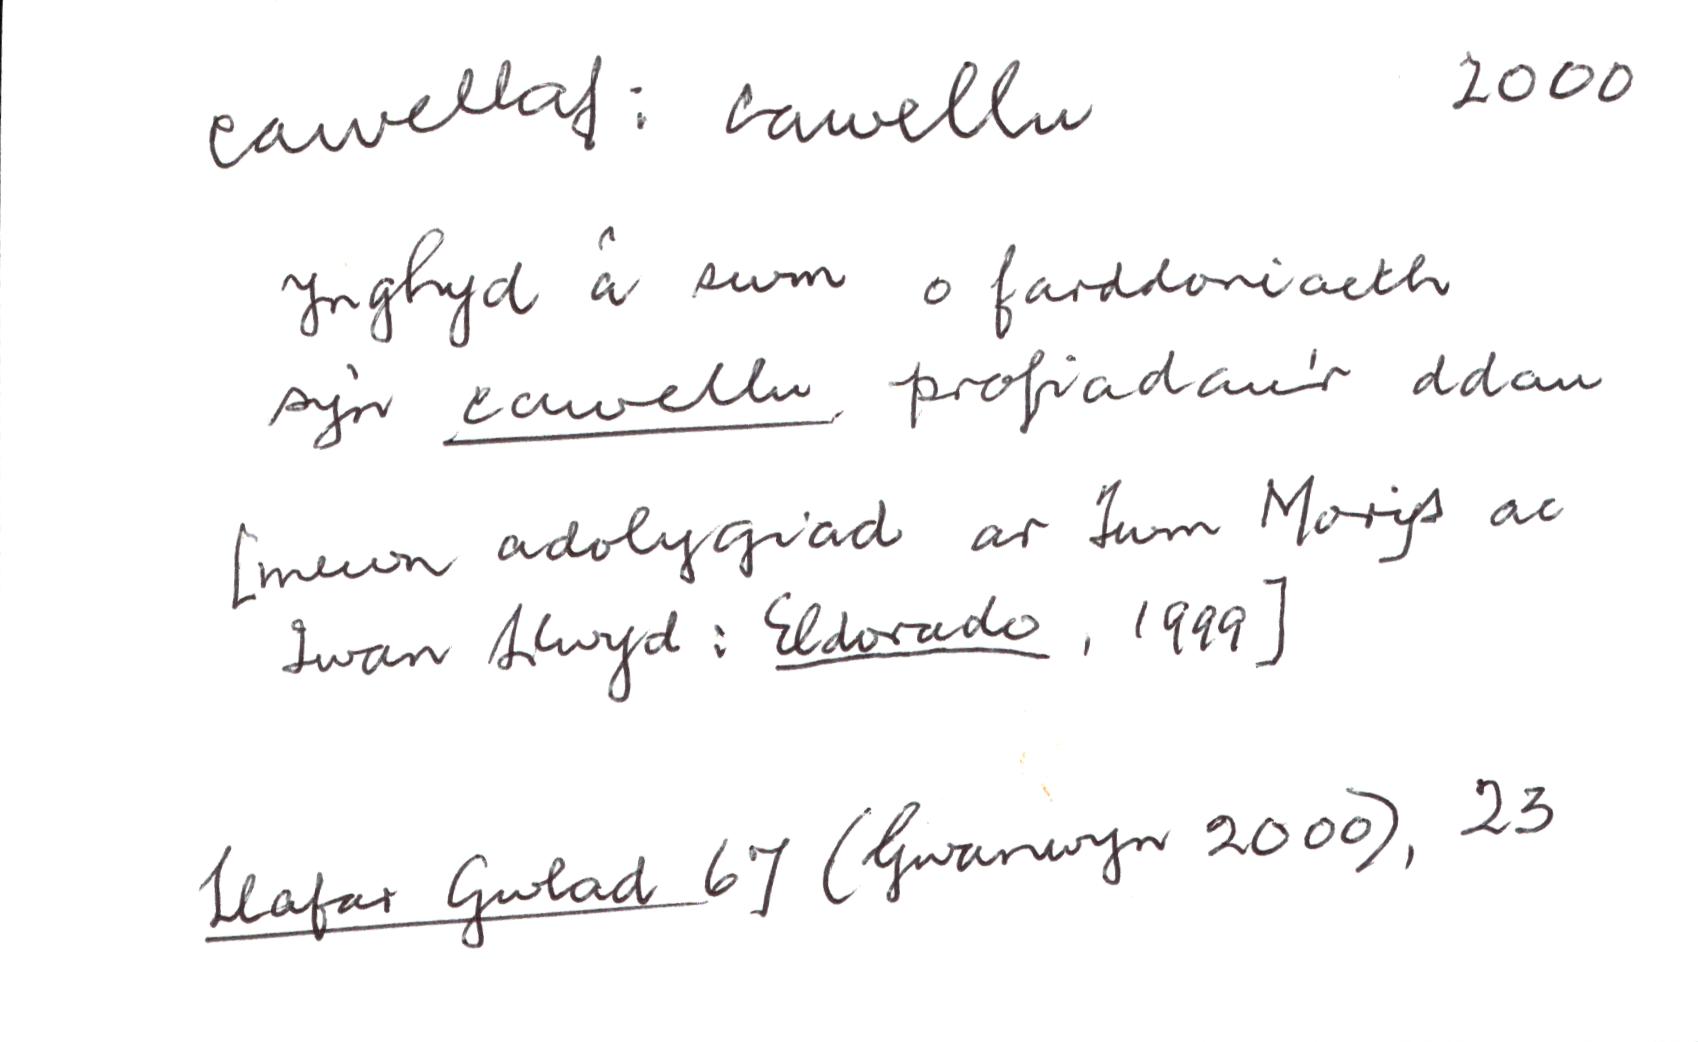 cawellaf: cawellu 2000
Ynghyd â swm o farddoniaeth
sy'n cawellu profiadau'r ddau
[mewn adolygiad ar Iwm Morys ac
Iwan Llwyd: Eldorado, 1999]
Llafar Gwlad 67 (Gwanwyn 2000), 23